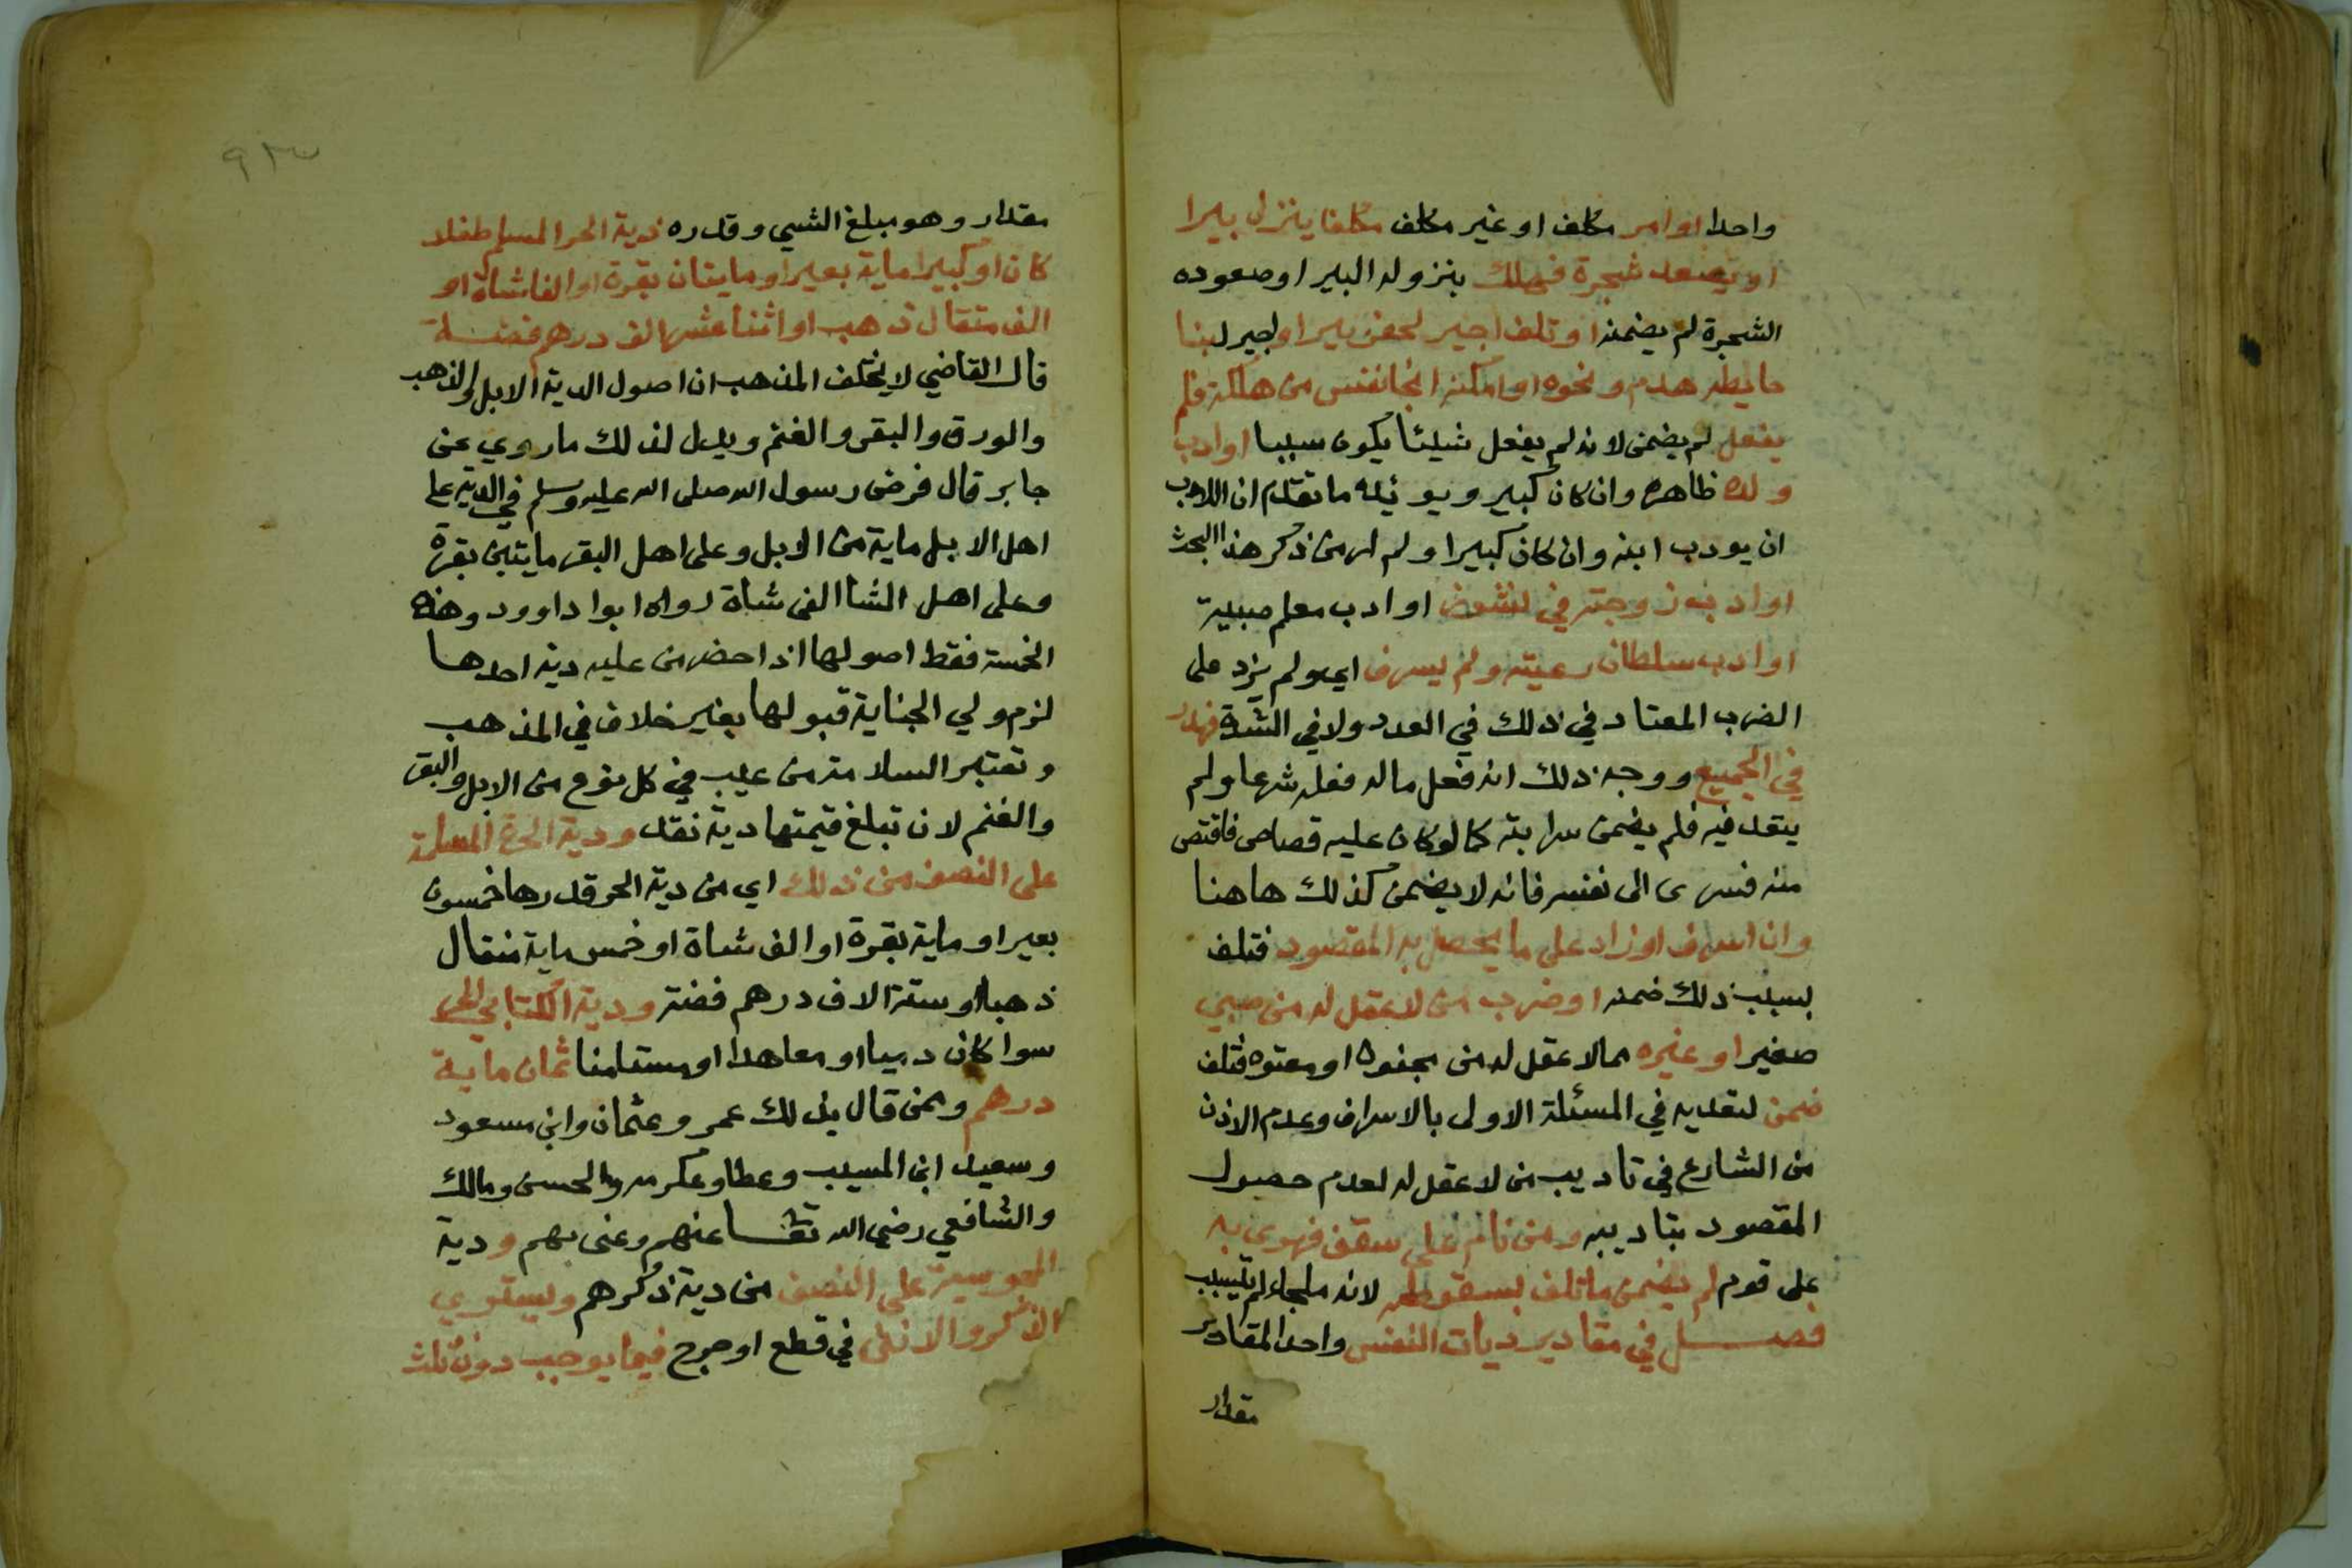 واحدا او امر مكلف او غير مكلف مكلفا ينزل بيرا
او يصعد شجرة فهلك بنزوله البير او صعوده
الشجرة لم يضمنه او تلف اجير لحفر بير او لجير لبنا
حايط هدم ونحوه او امكنه انجا نفس من هلكة فلم
يفعل لم يضمن لانه لم يفعل شيئا يكون سببا او ادب
ولده ظاهره وان كان كبير ويويده ما تقدم ان للاب
ان يودب ابنه وان كان كبيرا ولم ار من ذكر هذا البحث
او ادب زوجته في نشوز او ادب معلم صبية
او ادب سلطان رعيته ولم يسرف اي ولم يزد على
الضرب المعتاد في ذلك في العدد ولا في الشدة فهدر
في الجميع ووجه ذلك انه فعل ماله فعله شرعا ولم
يتعد فيه فلم يضمن سرايته كما لو كان عليه قصاص فاقتص
منه فسرى الى نفسه فانه لا يضمن كذلك هاهنا
وان اسرف او زاد على ما يحصل به المقصود فتلف
بسبب ذلك ضمنه او ضرب من لا عقل له من صبي
صغير او غيره مما لا عقل له من مجنون او معتوه فتلف
ضمن لتعديه في المسئلة الاولى بالاسراف وعدم الاذن
من الشارع في تاديب من لا عقل له لعدم حصول
المقصود بتاديبه ومن نام على سقف فهوى به
على قوم لم يضمن ما تلف بسقوطه لانه ملجاء لم يتسبب
فصل في مقادير ديات النفس واحد المقادير
مقدار
٩٣
مقدار وهو مبلغ الشي وقدره فدية الحر المسلم طفلا
كان او كبيرا ماية بعير او مايتان بقرة او الفا شاة او
الف مثقال ذهب او اثنا عشر الف درهم فضة
قال القاضي لا يختلف المذهب ان اصول الدية الابل والذهب
والورق والبقر والغنم ويدل لذلك ما روي عن
جابر قال فرض رسول الله صلى الله عليه وسلم في الدية على
اهل الابل ماية من الابل وعلى اهل البقر مايتين بقرة
وعلى اهل الشا الفى شاة رواه ابوا داوود وهذه
الخمسة فقط اصولها اذا احضر من عليه دية احدها
لزم ولي الجناية قبولها بغير خلاف في المذهب
وتعتبر السلامة من عيب في كل نوع من الابل والبقر
والغنم لا ان تبلغ قيمتها دية نقد ودية الحرة المسلمة
على النصف من ذلك اي من دية الحر قدرها خمسون
بعيرا وماية بقرة او الف شاة او خمس ماية مثقال
ذهبا او ستة الاف درهم فضة ودية الكتابي الحر
سوا كان دميا او معاهدا او مستامنا ثمان ماية
درهم وممن قال بذلك عمر وعثمان وابن مسعود
وسعيد ابن المسيب وعطا وعكرمه والحسن ومالك
والشافعي رضي الله تعا عنهم وعنى بهم ودية
المجوسية على النصف من دية ذكرهم ويستوي
الذكر والانثى في قطع او جرح فيما يوجب دون ثلث